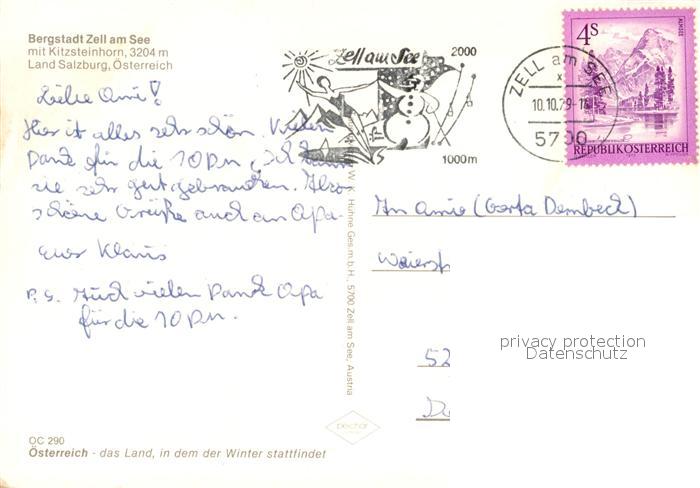 Bergstadt Zell am See
mit Kitzsteinhorn, 3204 m
Land Salzburg, Österreich
Liebe Omi!
Hier ist alles sehr schön. Vielen
Dank für die 10 DM, ich kann
sie sehr gut gebrauchen. Also
schöne Grüße auch an Opa.
Euer Klaus
P.S. Auch vielen Dank Opa
für die 10 DM.
OC 290
Österreich - das Land, in dem der Winter stattfindet
W. K. Hühne Ges.m.b.H., 5700 Zell am See, Austria
pechar
Zell am See
2000
1000m
ZELL am SEE
10.10.79-1
5700
4S
ALMSEE
REPUBLIK ÖSTERREICH
An Omie (Gerta Dembeck)
Weierst
52
privacy protection
Datenschutz